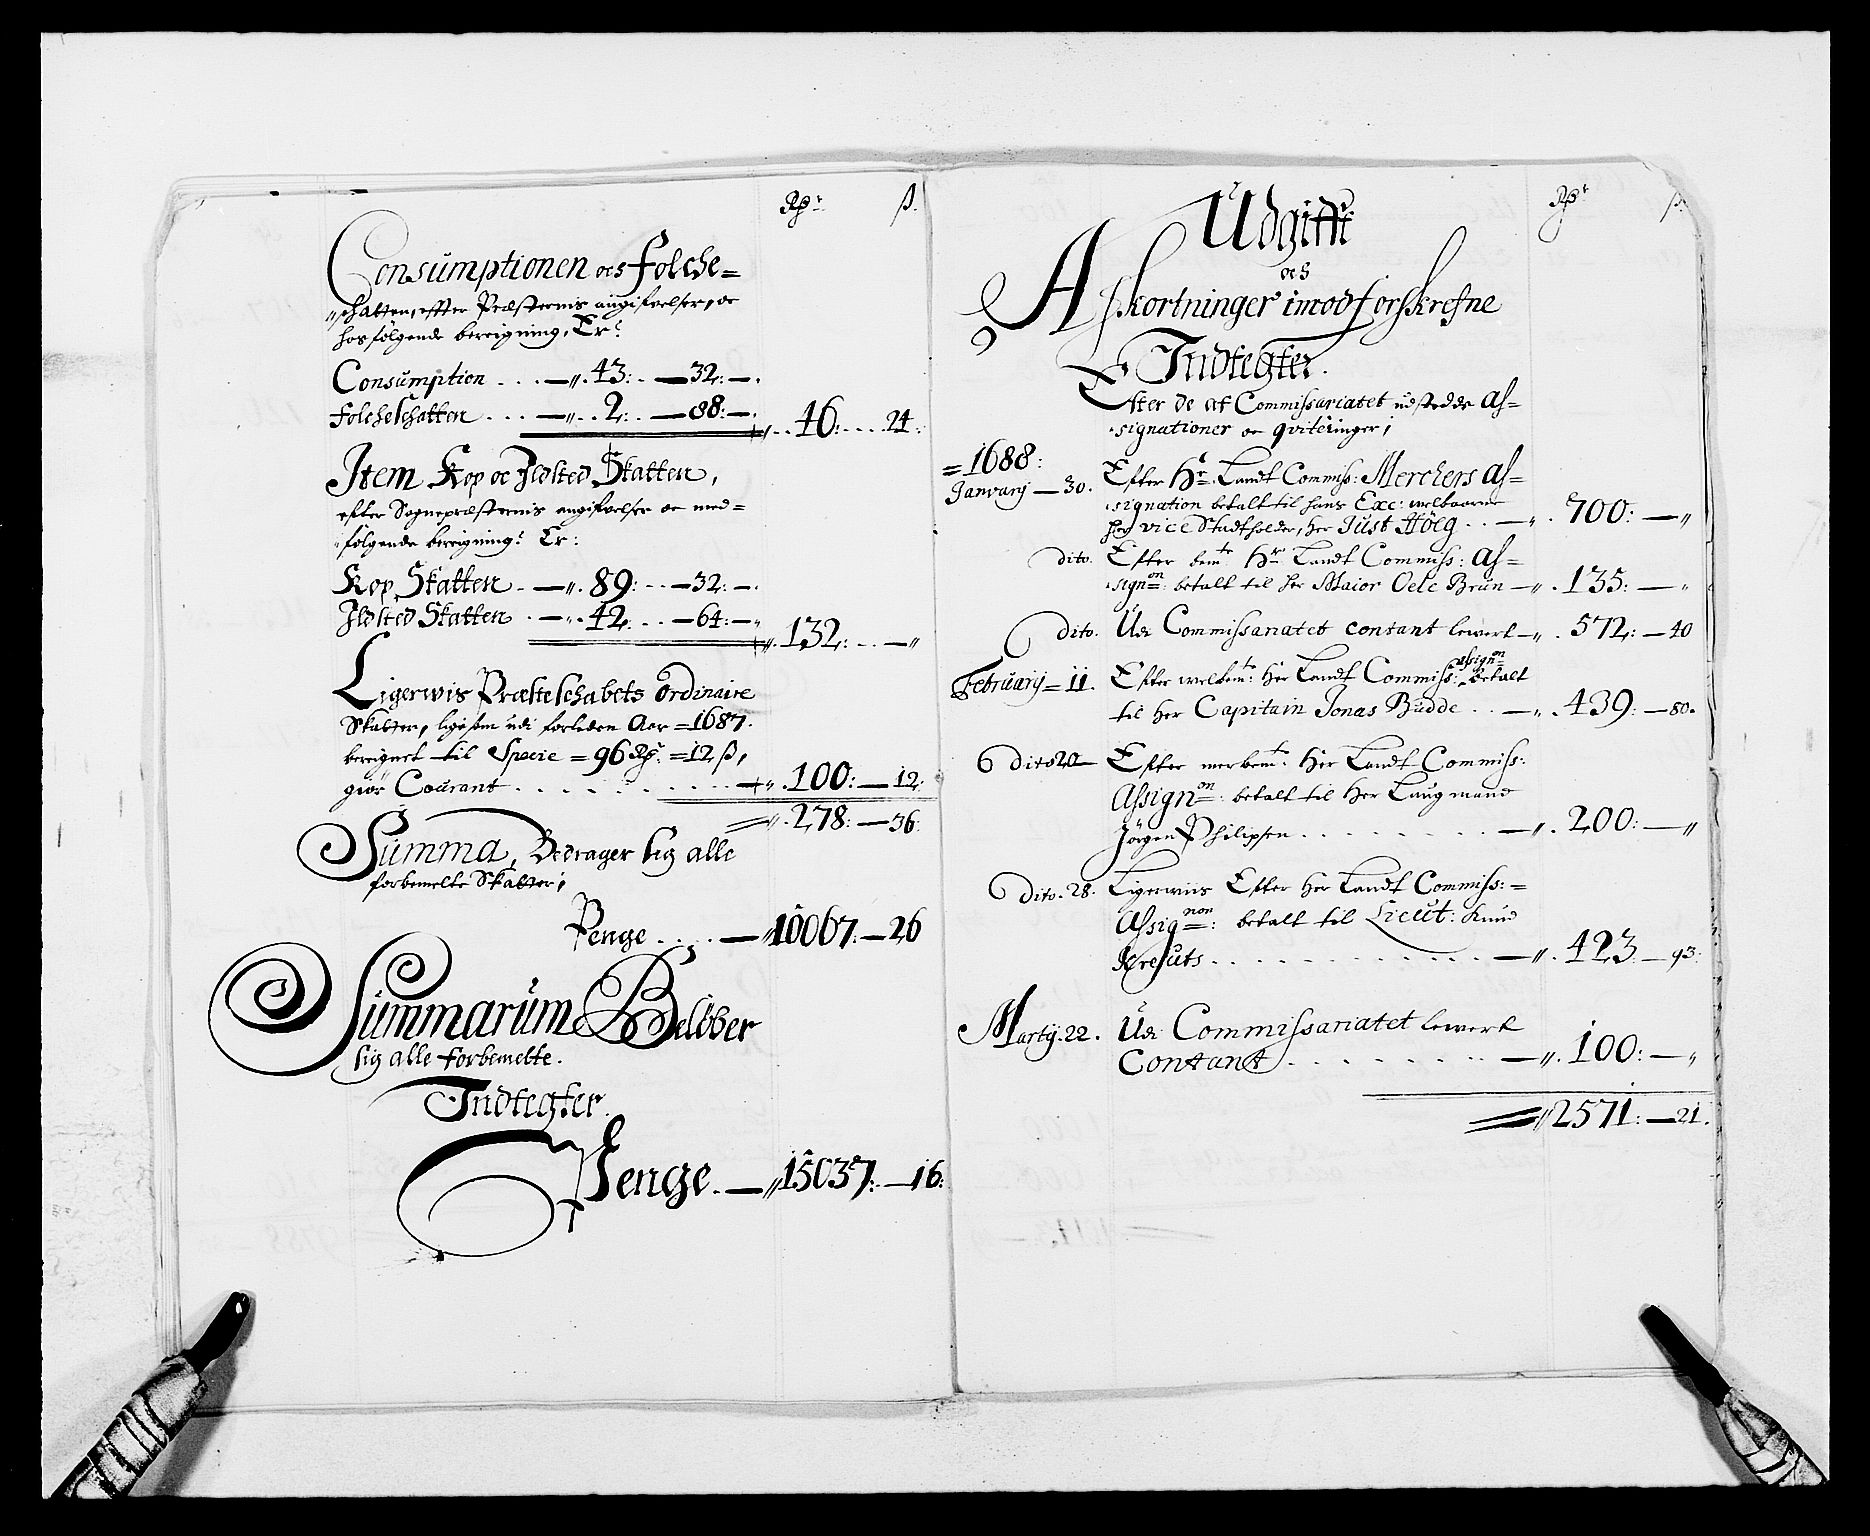 Rdr ß.
Consumptionen och Folche=
schatten, effter Præsternis angifvelser, oc
hosfølgende beregning, Er:
Consumption . . . — „ 43: — 32: —
Folcheschatten . . . — „ 2: — 88: —
„ 46: . . . 24.
Item Kop oc Ildsted Skatten,
efter Sognepræsternis angifvelser oc med=
følgende beregning: Er:
Kop Skatten . — „ 89: — 32: —
Ildsted Skatten . — „ 42: — 64: —
„ 132: — „
Ligerwis Præsteschabets ordinaire
Skatter, ligesom udi forleden Aar = 1687.
beregnet til Specie = 96 Rdr = 12 ß,
giør Courant . . . . „ 100: — 12:
„ 278: — 36:
Summa, Bedrager sig alle
forbemelte Skatter;
Penge . . . — „ 10067. — 26
Summarum Beløber
sig alle forbemelte.
Indtegter.
Penge. — „ 15037: — 16:
Rdr ß.
Udgifft
och
Afkortninger imod forskrefne
Indtegter.
Efter de af Commissariatet udstedde As=
signationer oc qviteringer;
= 1688:
Januarij — 30. Efter Hr. Landt Commiss: Merchers As=
signation betalt til hans Exc: welbaarne
her vice Stadtholder, her Just Høeg . . — „ 700: — „
dito. Efter bemte Hr Landt Commiss: As=
signon: betalt til her Maior Oele Brun — „ 135: — „
dito. Udi Commissariatet contant lewert — „ 572: — 40
Februarij = 11. Efter welbemt: her Landt Commiss: assignon betalt
til her Capitain Jonas Budde . . — „ 439: — 80.
dito 20 Efter merbemt: Her Landt Commiss:
Assignon: betalt til Her Laugmand
Jørgen Philipsen . . . . — „ 200: — „
dito. 28. Ligerwiis Efter her Landt Commiss: =
Assignon: betalt til Lieut: Knud
. . . . — „ 423 — 93:
Martij. 22. Udi Commissariatet lewert
Contant . . . . — „ 100: — „
„ 2571: — 21.